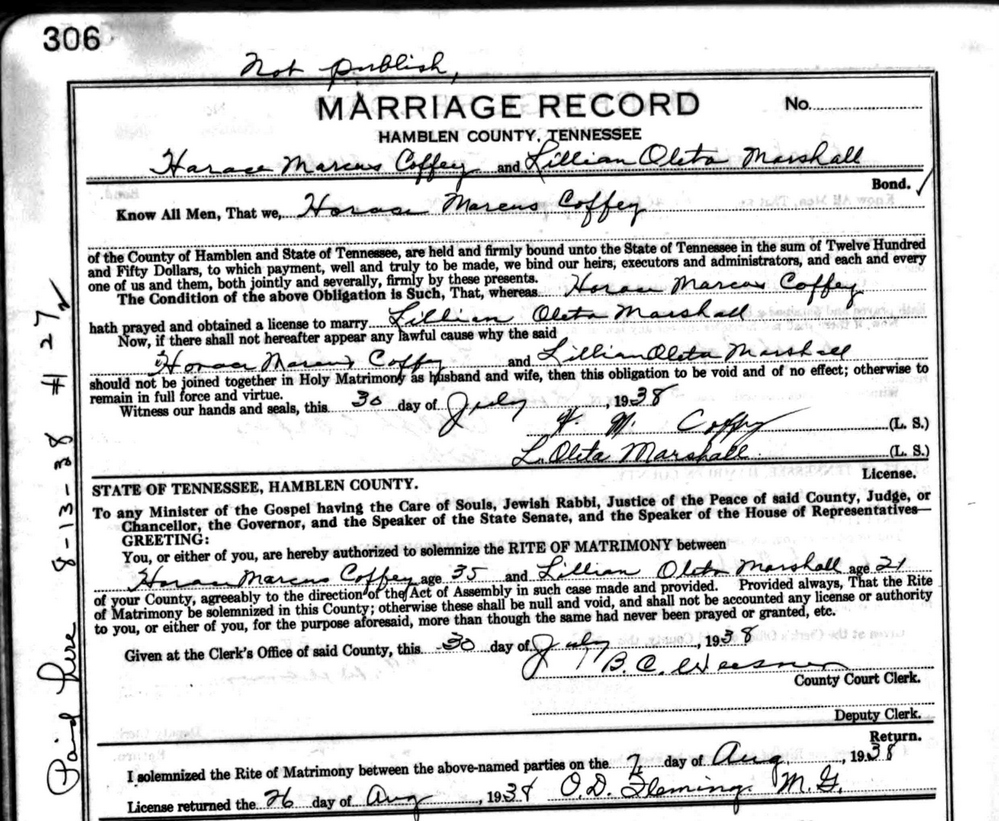 306
Not publish,
MARRIAGE RECORD No.
HAMBLEN COUNTY, TENNESSEE
Horace Marcus Coffey and Lillian Oleta Marshall
Bond. ✓
Know All Men, That we, Horace Marcus Coffey
of the County of Hamblen and State of Tennessee, are held and firmly bound unto the State of Tennessee in the sum of Twelve Hundred
and Fifty Dollars, to which payment, well and truly to be made, we bind our heirs, executors and administrators, and each and every
one of us and them, both jointly and severally, firmly by these presents.
The Condition of the above Obligation is Such, That, whereas Horace Marcus Coffey
hath prayed and obtained a license to marry Lillian Oleta Marshall
Now, if there shall not hereafter appear any lawful cause why the said
Horace Marcus Coffey and Lillian Oleta Marshall
should not be joined together in Holy Matrimony as husband and wife, then this obligation to be void and of no effect; otherwise to
remain in full force and virtue.
Witness our hands and seals, this 30 day of July, 1938
H. M. Coffey (L. S.)
L. Oleta Marshall (L. S.)
License.
STATE OF TENNESSEE, HAMBLEN COUNTY.
To any Minister of the Gospel having the Care of Souls, Jewish Rabbi, Justice of the Peace of said County, Judge, or
Chancellor, the Governor, and the Speaker of the State Senate, and the Speaker of the House of Representatives—
GREETING:
You, or either of you, are hereby authorized to solemnize the RITE OF MATRIMONY between
Horace Marcus Coffey age 35 and Lillian Oleta Marshall age 21
of your County, agreeably to the direction of the Act of Assembly in such case made and provided. Provided always, That the Rite
of Matrimony be solemnized in this County; otherwise these shall be null and void, and shall not be accounted any license or authority
to you, or either of you, for the purpose aforesaid, more than though the same had never been prayed or granted, etc.
Given at the Clerk's Office of said County, this 30 day of July, 1938
B. C. Weesner
County Court Clerk.
Deputy Clerk.
Return.
I solemnized the Rite of Matrimony between the above-named parties on the 7 day of Aug, 1938
License returned the 26 day of Aug, 1938 O.D. Fleming, M. G.
Paid here 8-13-38 # 27